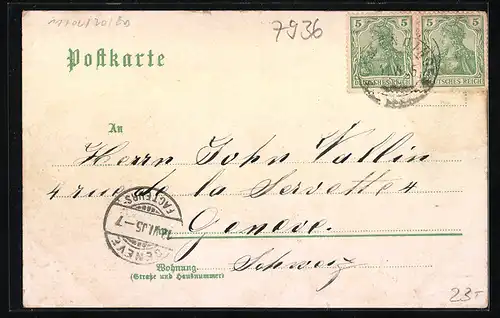 7936
5 5
DEUTSCHES REICH DEUTSCHES REICH
Postkarte
An
Herrn John Wallin
4 rue de la Servette 4
Genève.
in
Schweiz
GENÈVE
FACTEURS
Wohnung
(Straße und Hausnummer)
23-